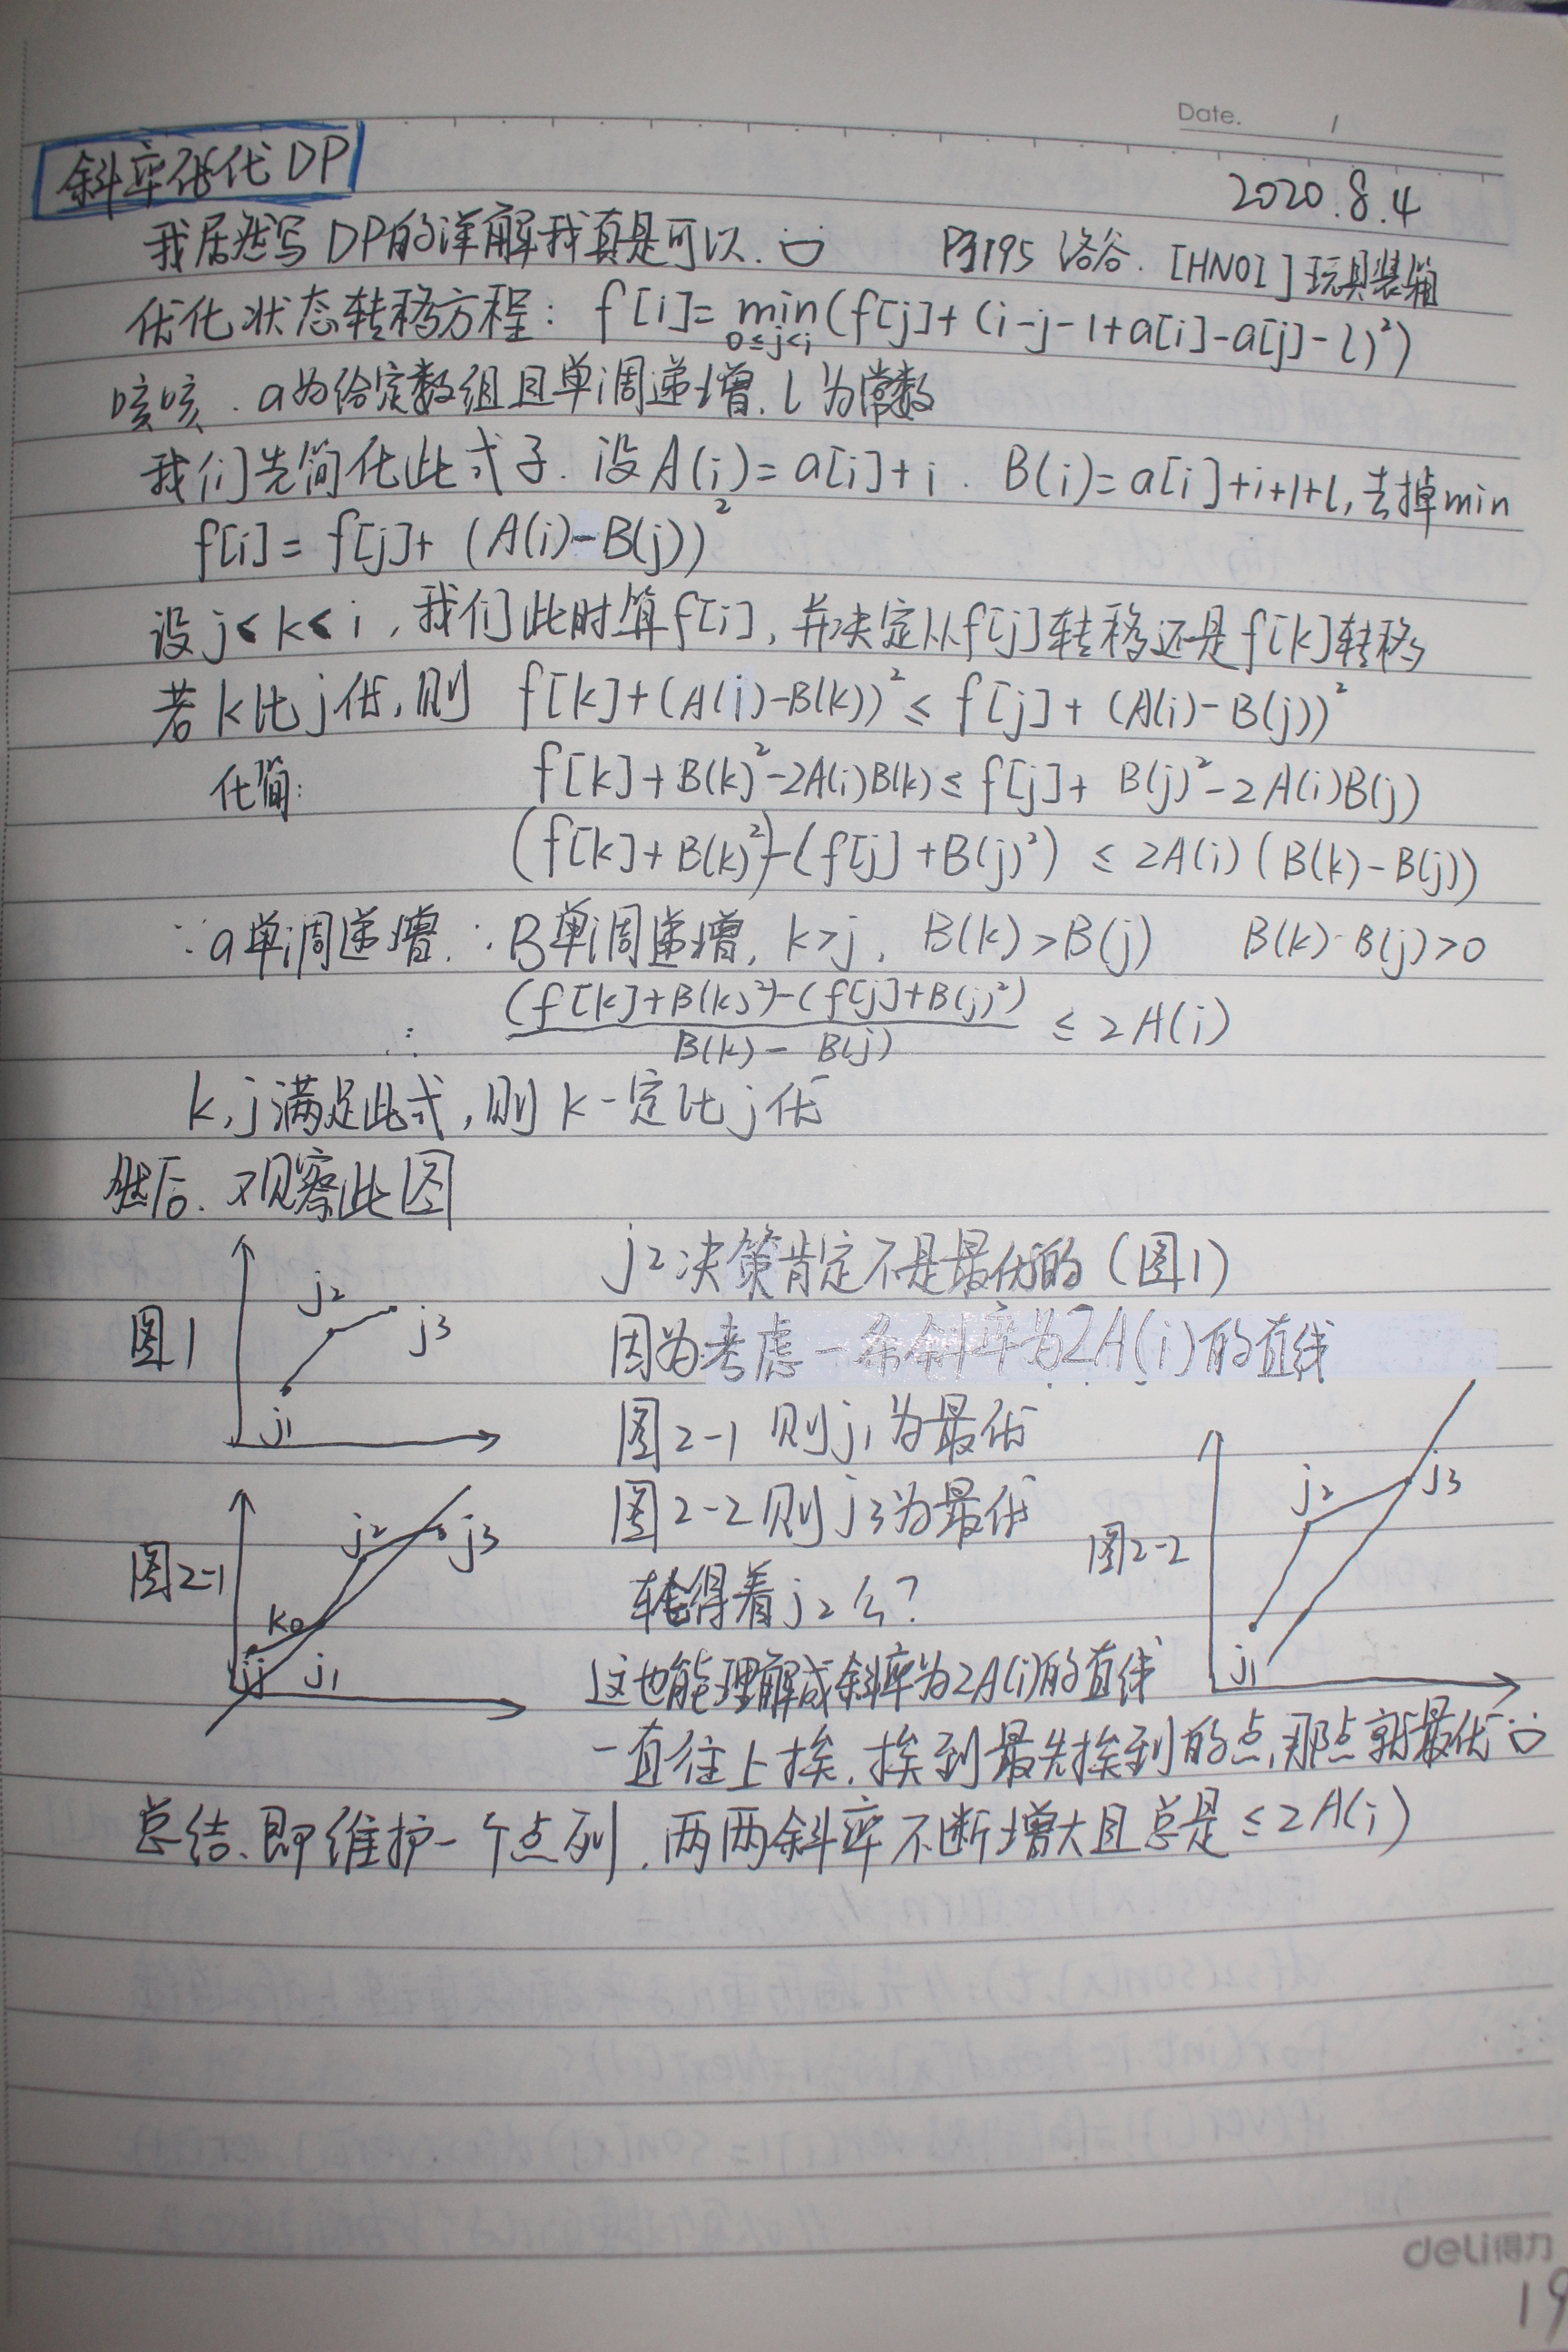 Date. /
斜率优化DP
2020.8.4
我居然写DP的详解我真是可以.
P3195 洛谷. [HNOI]玩具装箱
优化状态转移方程: f[i]= min(f[j]+(i-j-1+a[i]-a[j]-l)²)
0≤j<i
咳咳. a为给定数组且单调递增. l为常数
我们先简化此式子. 设A(i)=a[i]+i. B(i)=a[i]+i+1+l, 去掉min
f[i]= f[j]+ (A(i)-B(j))²
设j<k<i, 我们此时算f[i], 并决定从f[j]转移还是f[k]转移
若k比j优, 则 f[k]+(A(i)-B(k))² ≤ f[j]+ (A(i)-B(j))²
化简: f[k]+B(k)²-2A(i)B(k) ≤ f[j]+ B(j)²-2A(i)B(j)
(f[k]+B(k)²)-(f[j]+B(j)²) ≤ 2A(i)(B(k)-B(j))
∵a单调递增. ∴B单调递增, k>j, B(k)>B(j) B(k)-B(j)>0
∴ (f[k]+B(k)²)-(f[j]+B(j)²)
B(k)- B(j)
≤ 2A(i)
k,j满足此式, 则k一定比j优
然后. 观察此图
图1
j2
j3
j1
j2决策肯定不是最优的(图1)
因为考虑一条斜率为2A(i)的直线
图2-1 则j1为最优
图2-2则j3为最优
轮得着j2么?
图2-1
j2
j3
k0
jj
j1
图2-2
j2
j3
j1
这也能理解成斜率为2A(i)的直线
一直往上挨, 挨到最先挨到的点, 那点就最优
总结、即维护一个点列, 两两斜率不断增大且总是≤2A(i)
deli得力
19